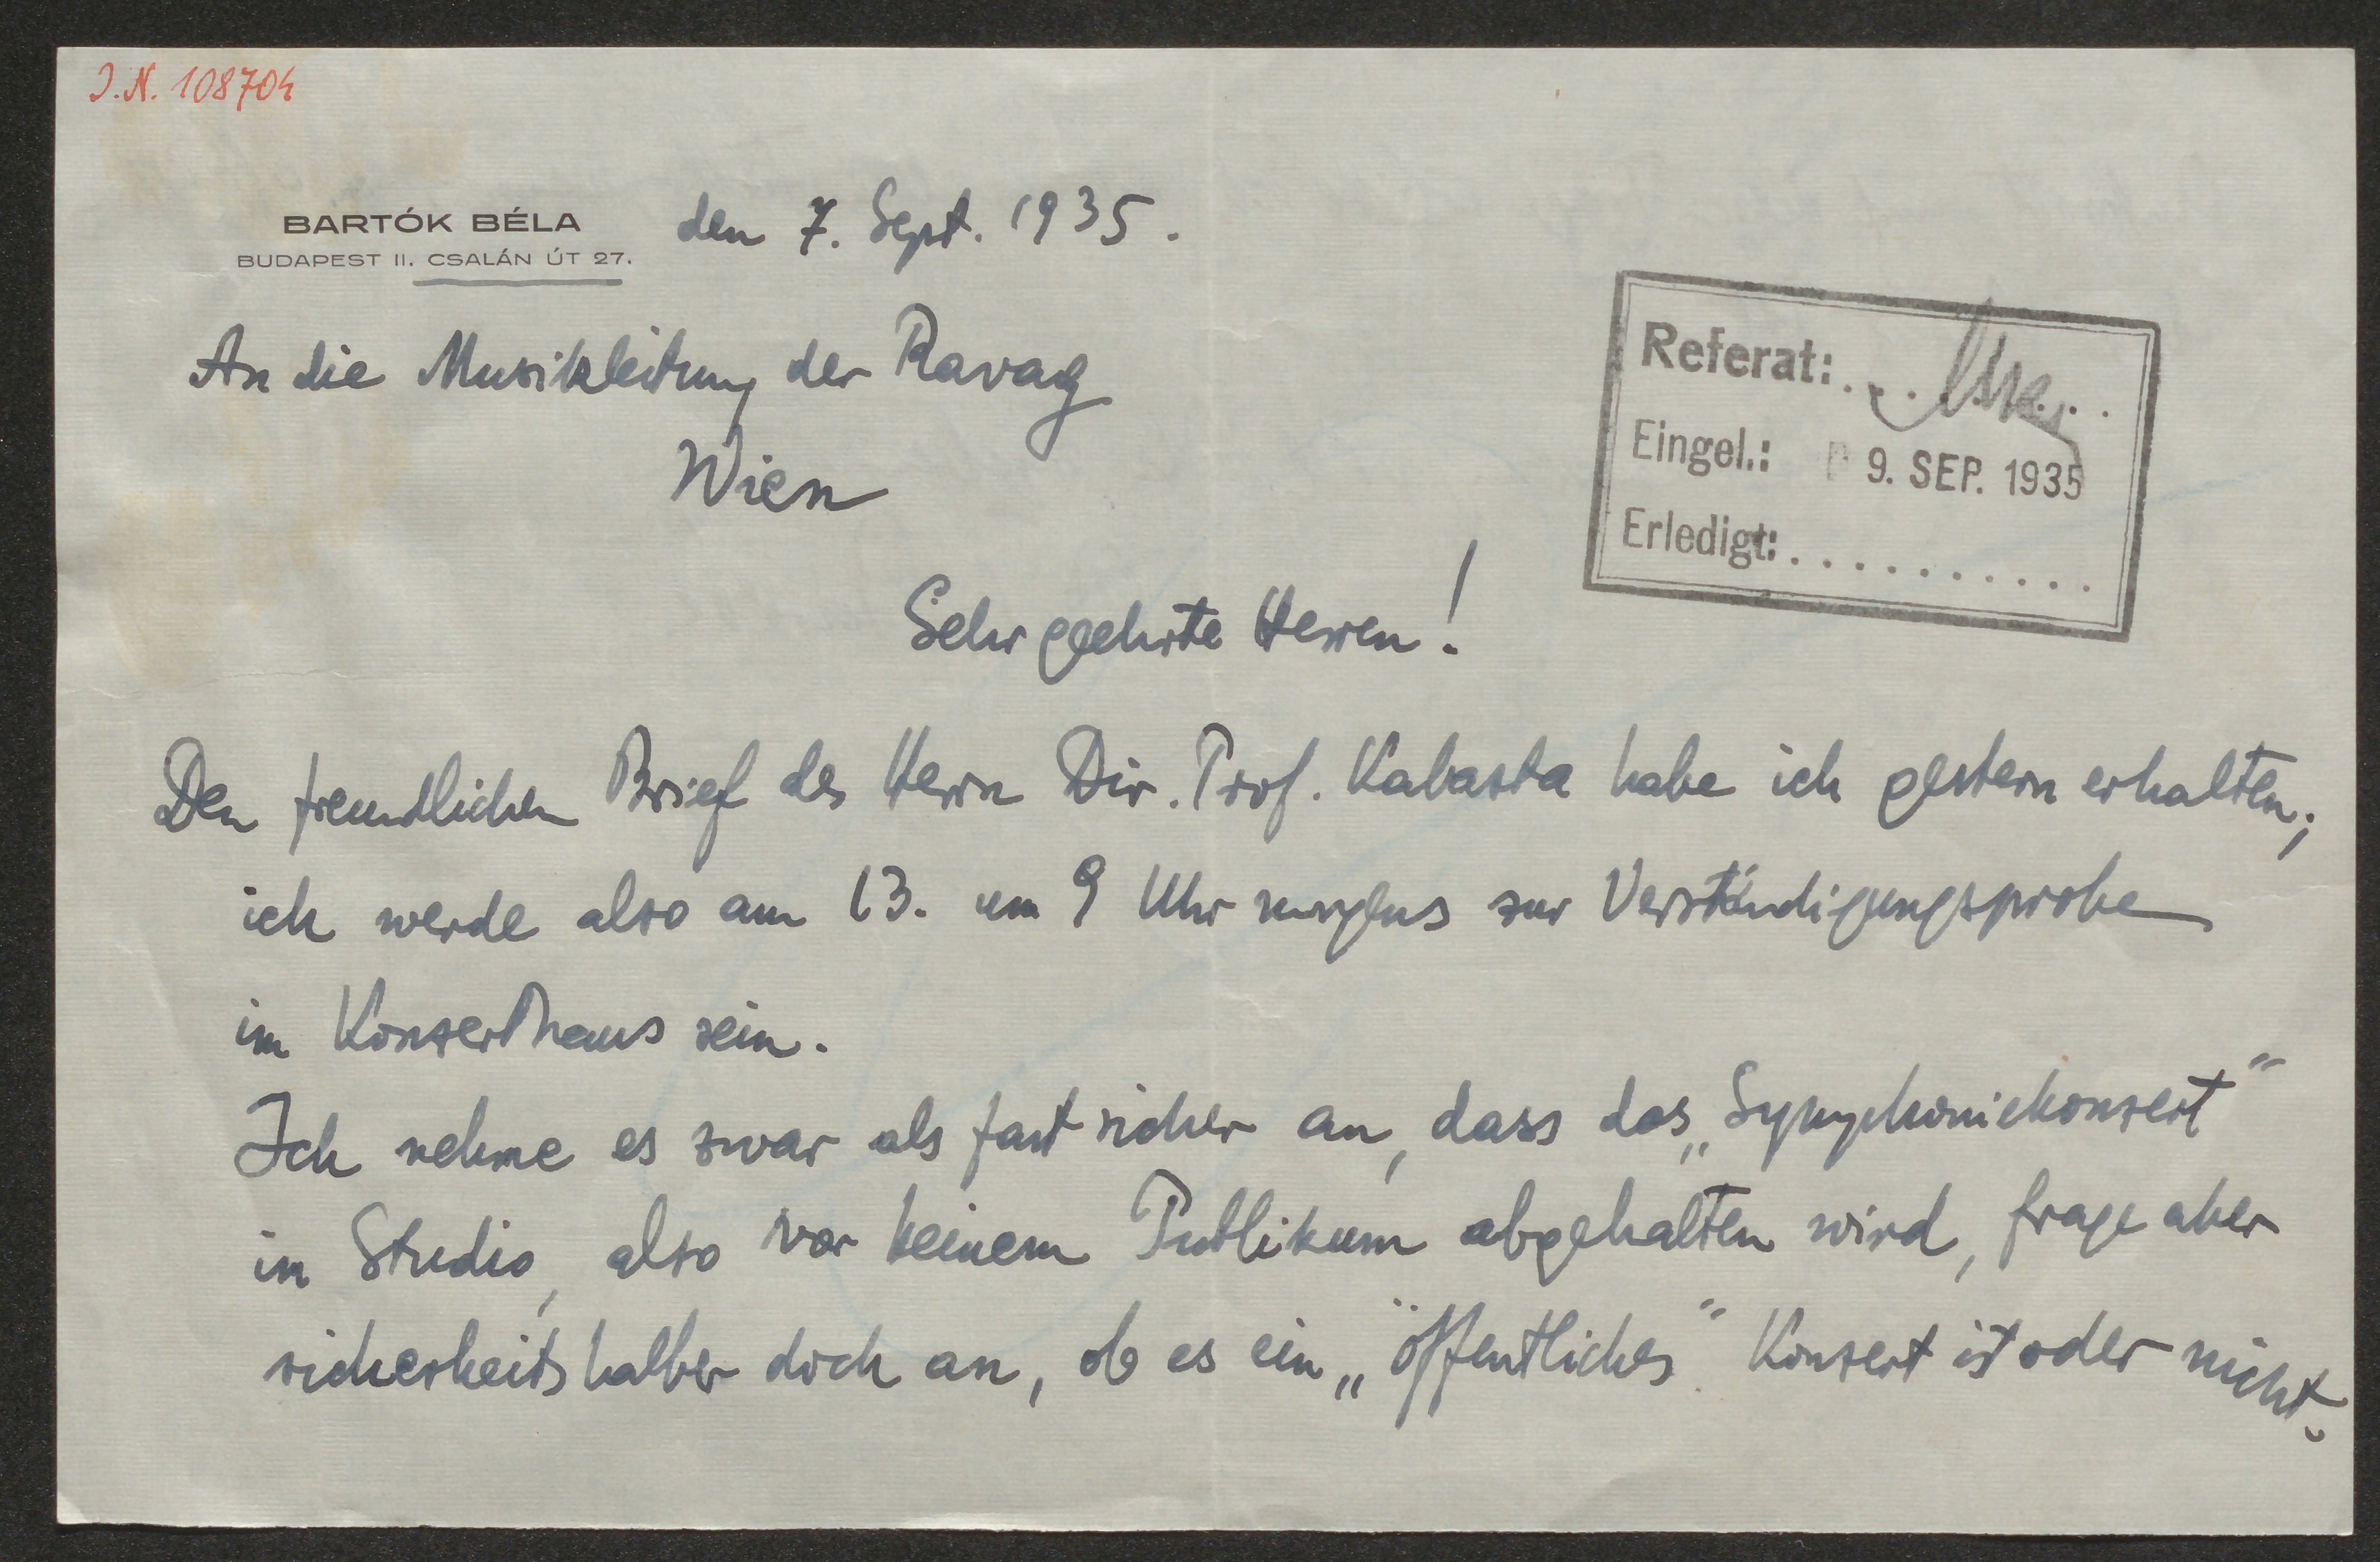 J.N. 108704
BARTÓK BÉLA
BUDAPEST II. CSALÁN ÚT 27.
den 7. Sept. 1935.
An die Musikleitung der Ravag
Wien
Referat:
Eingel.: 9. SEP. 1935
Erledigt:
Sehr geehrte Herren!
Den freundlichen Brief des Herrn Dir. Prof. Kabasta habe ich gestern erhalten;
ich werde also am 13. um 9 Uhr morgens zur Verständigungsprobe
im Konzerthaus sein.
Ich nehme es zwar als fast sicher an, dass das „Symphoniekonzert“
im Studio, also vor keinem Publikum abgehalten wird, frage aber
sicherheitshalber doch an, ob es ein „öffentliches“ Konzert ist oder nicht.